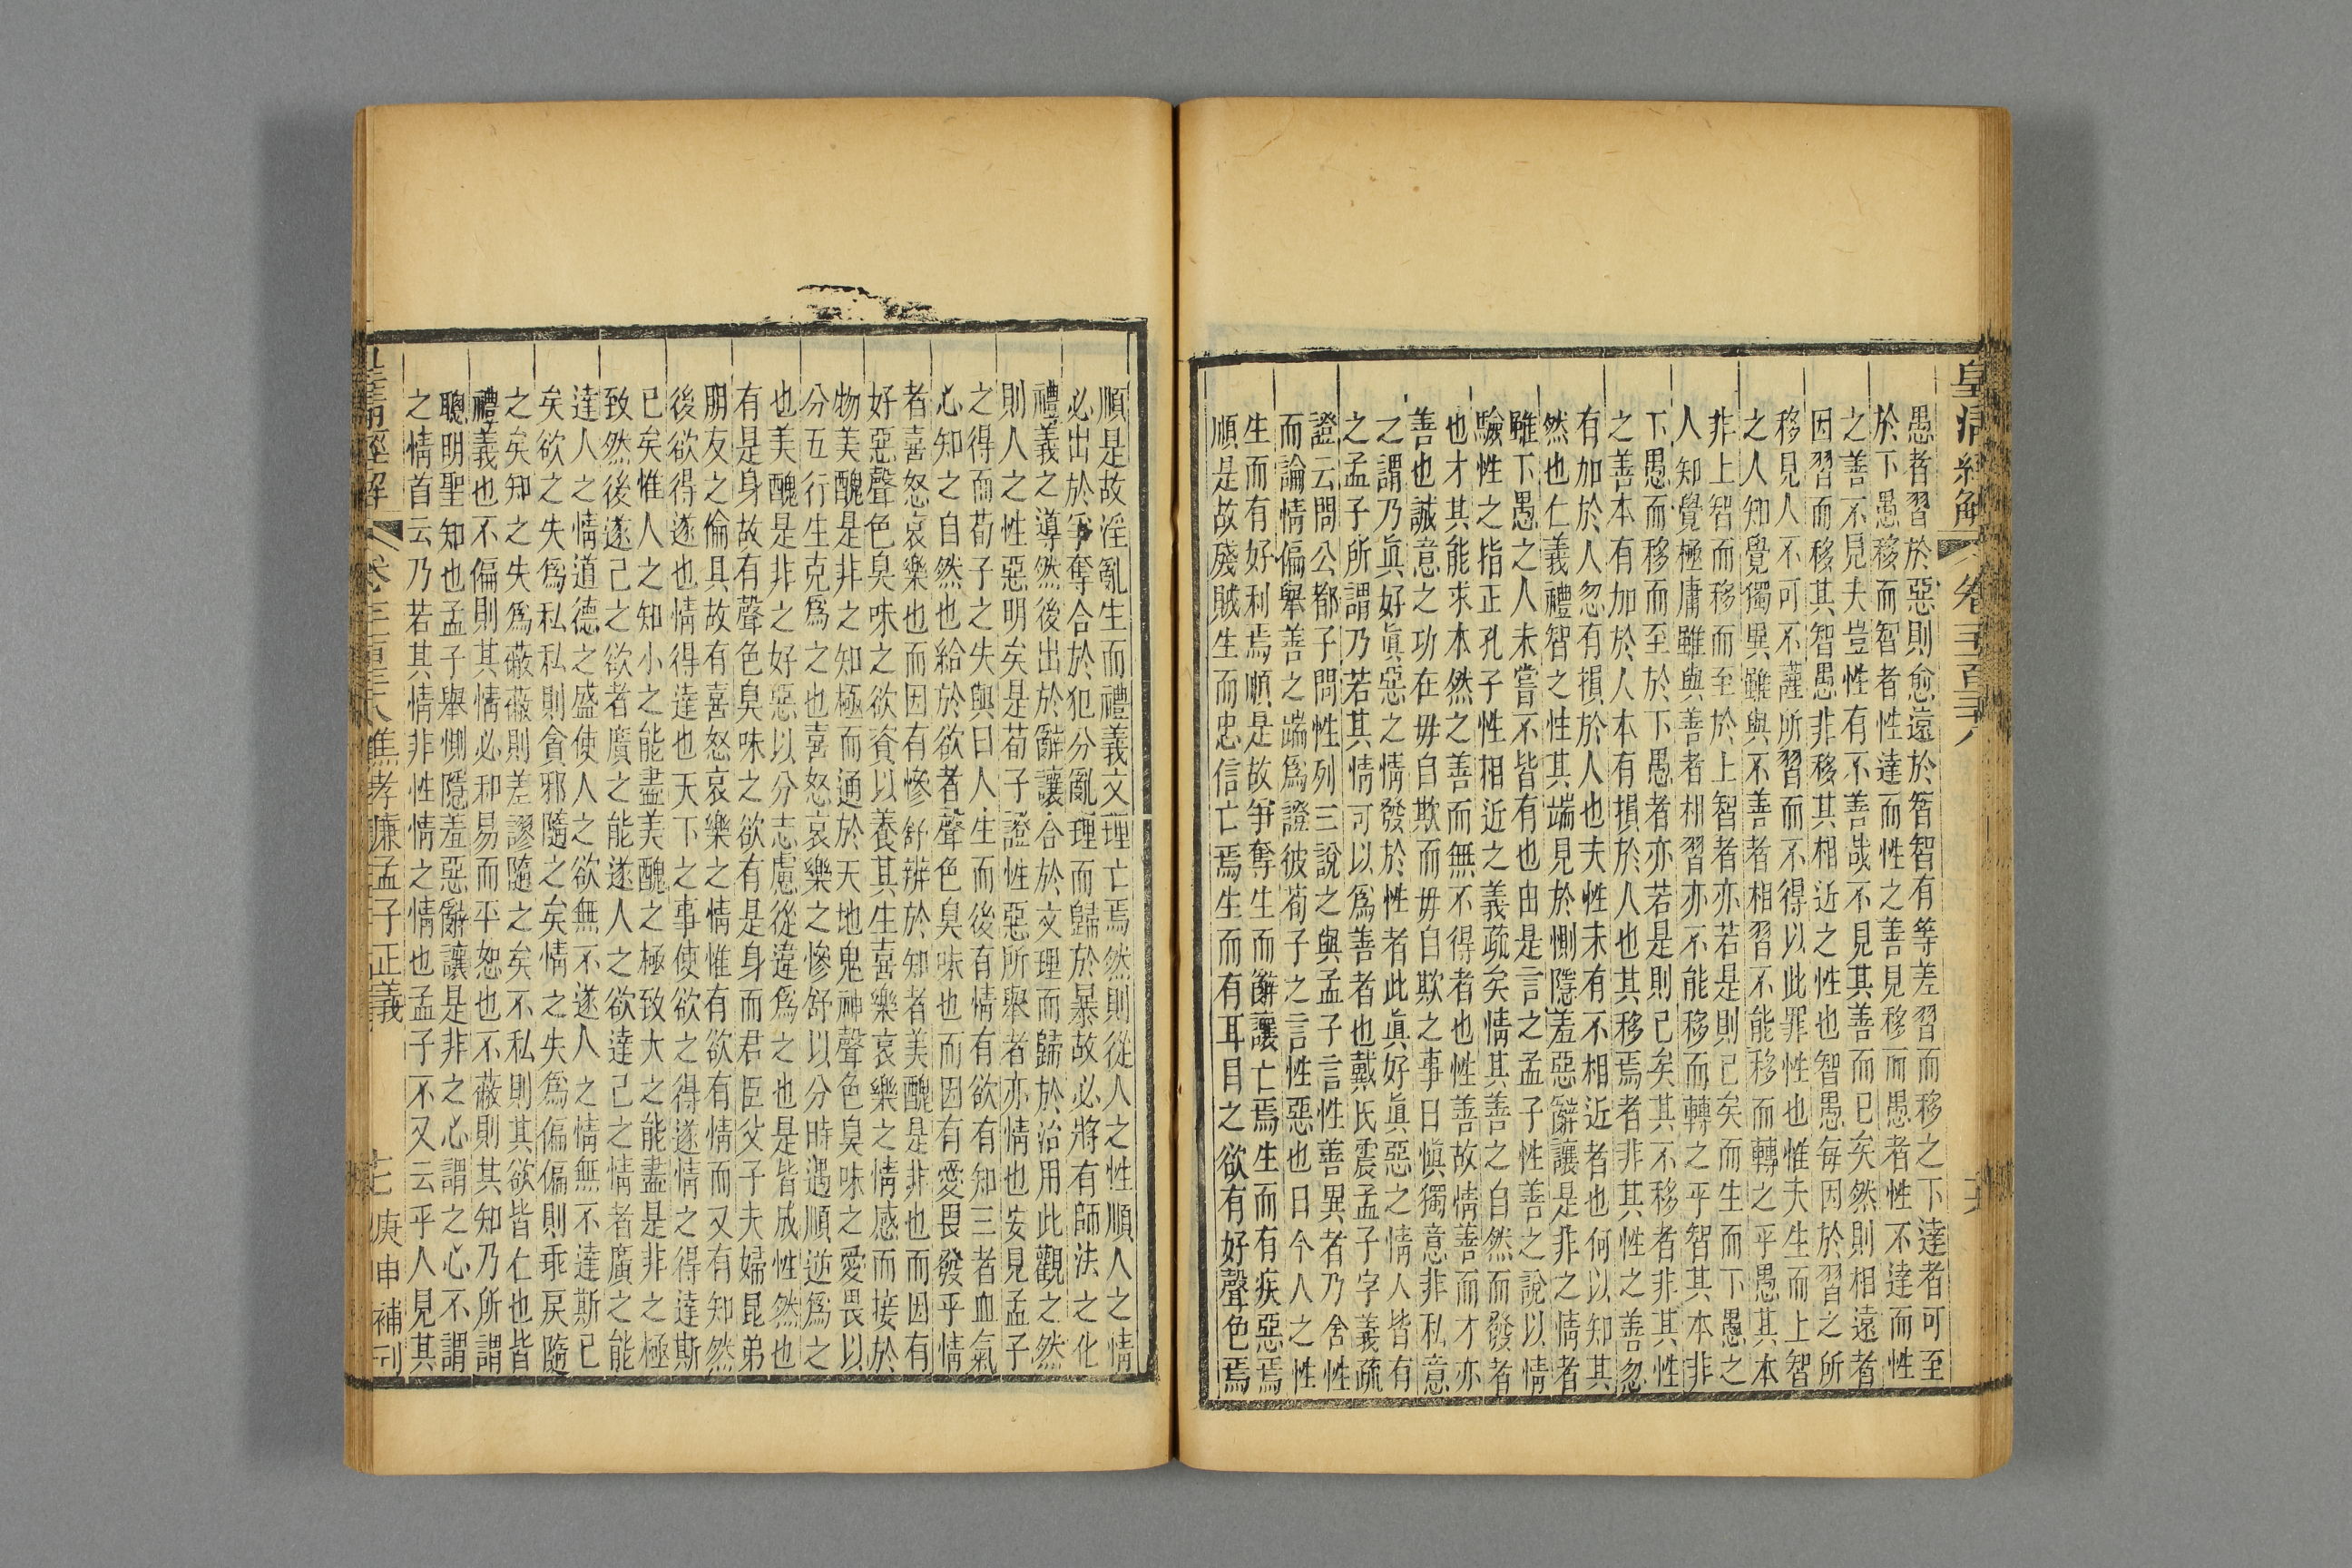 皇清經解 卷千百三十八 六
愚者習於惡則愈遠於智智有等差習而移之下達者可至
於下愚移而智者性達而性之善見移而愚者性不達而性
之善不見夫豈性有不善哉不見其善而已矣然則相遠者
因習而移其智愚非移其相近之性也智愚每因於習之所
移見人不可不謹所習而不得以此罪性也惟夫生而上智
之人知覺獨異雖與不善者相習不能移而轉之乎愚其本
非上智而移而至於上智者亦若是則已矣而生而下愚之
人知覺極庸雖與善者相習亦不能移而轉之乎智其本非
下愚而移而至於下愚者亦若是則已矣其不移者非其性
之善本有加於人本有損於人也其移焉者非其性之善忽
有加於人忽有損於人也夫性未有不相近者也何以知其
然也仁義禮智之性其端見於惻隱羞惡辭讓是非之情者
雖下愚之人未嘗不皆有也由是言之孟子性善之說以情
驗性之指正孔子性相近之義疏矣情其善之自然而發者
也才其能求本然之善而無不得者也性善故情善而才亦
善也誠意之功在毋自欺而毋自欺之事曰愼獨意非私意
之謂乃眞好眞惡之情發於性者此眞好眞惡之情人皆有
之孟子所謂乃若其情可以爲善者也戴氏震孟子字義疏
證云問公都子問性列三說之與孟子言性善異者乃舍性
而論情偏舉善之端爲證彼荀子之言性惡也曰今人之性
生而有好利焉順是故爭奪生而辭讓亡焉生而有疾惡焉
順是故殘賊生而忠信亡焉生而有耳目之欲有好聲色焉
順是故淫亂生而禮義文理亡焉然則從人之性順人之情
必出於爭奪合於犯分亂理而歸於暴故必將有師法之化
禮義之導然後出於辭讓合於文理而歸於治用此觀之然
則人之性惡明矣是荀子證性惡所舉者亦情也安見孟子
之得而荀子之失與曰人生而後有情有欲有知三者血氣
心知之自然也給於欲者聲色臭味也而因有愛畏發乎情
者喜怒哀樂也而因有慘舒辨於知者美醜是非也而因有
好惡聲色臭味之欲資以養其生喜樂哀樂之情感而接於
物美醜是非之知極而通於天地鬼神聲色臭味之愛畏以
分五行生克爲之也喜怒哀樂之慘舒以分時遇順逆爲之
也美醜是非之好惡以分志慮從違爲之也是皆成性然也
有是身故有聲色臭味之欲有是身而君臣父子夫婦昆弟
朋友之倫具故有喜怒哀樂之情惟有欲有情而又有知然
後欲得遂也情得達也天下之事使欲之得遂情之得達斯
已矣惟人之知小之能盡美醜之極致大之能盡是非之極
致然後遂己之欲者廣之能遂人之欲達己之情者廣之能
達人之情道德之盛使人之欲無不遂人之情無不達斯已
矣欲之失爲私私則貪邪隨之矣情之失爲偏偏則乖戾隨
之矣知之失爲蔽蔽則差謬隨之矣不私則其欲皆仁也皆
禮義也不偏則其情必和易而平恕也不蔽則其知乃所謂
聰明聖知也孟子舉惻隱羞惡辭讓是非之心謂之心不謂
之情首云乃若其情非性情之情也孟子不又云乎人見其
皇清經解 卷千百三十八 焦孝廉孟子正義 七 庚申補刊